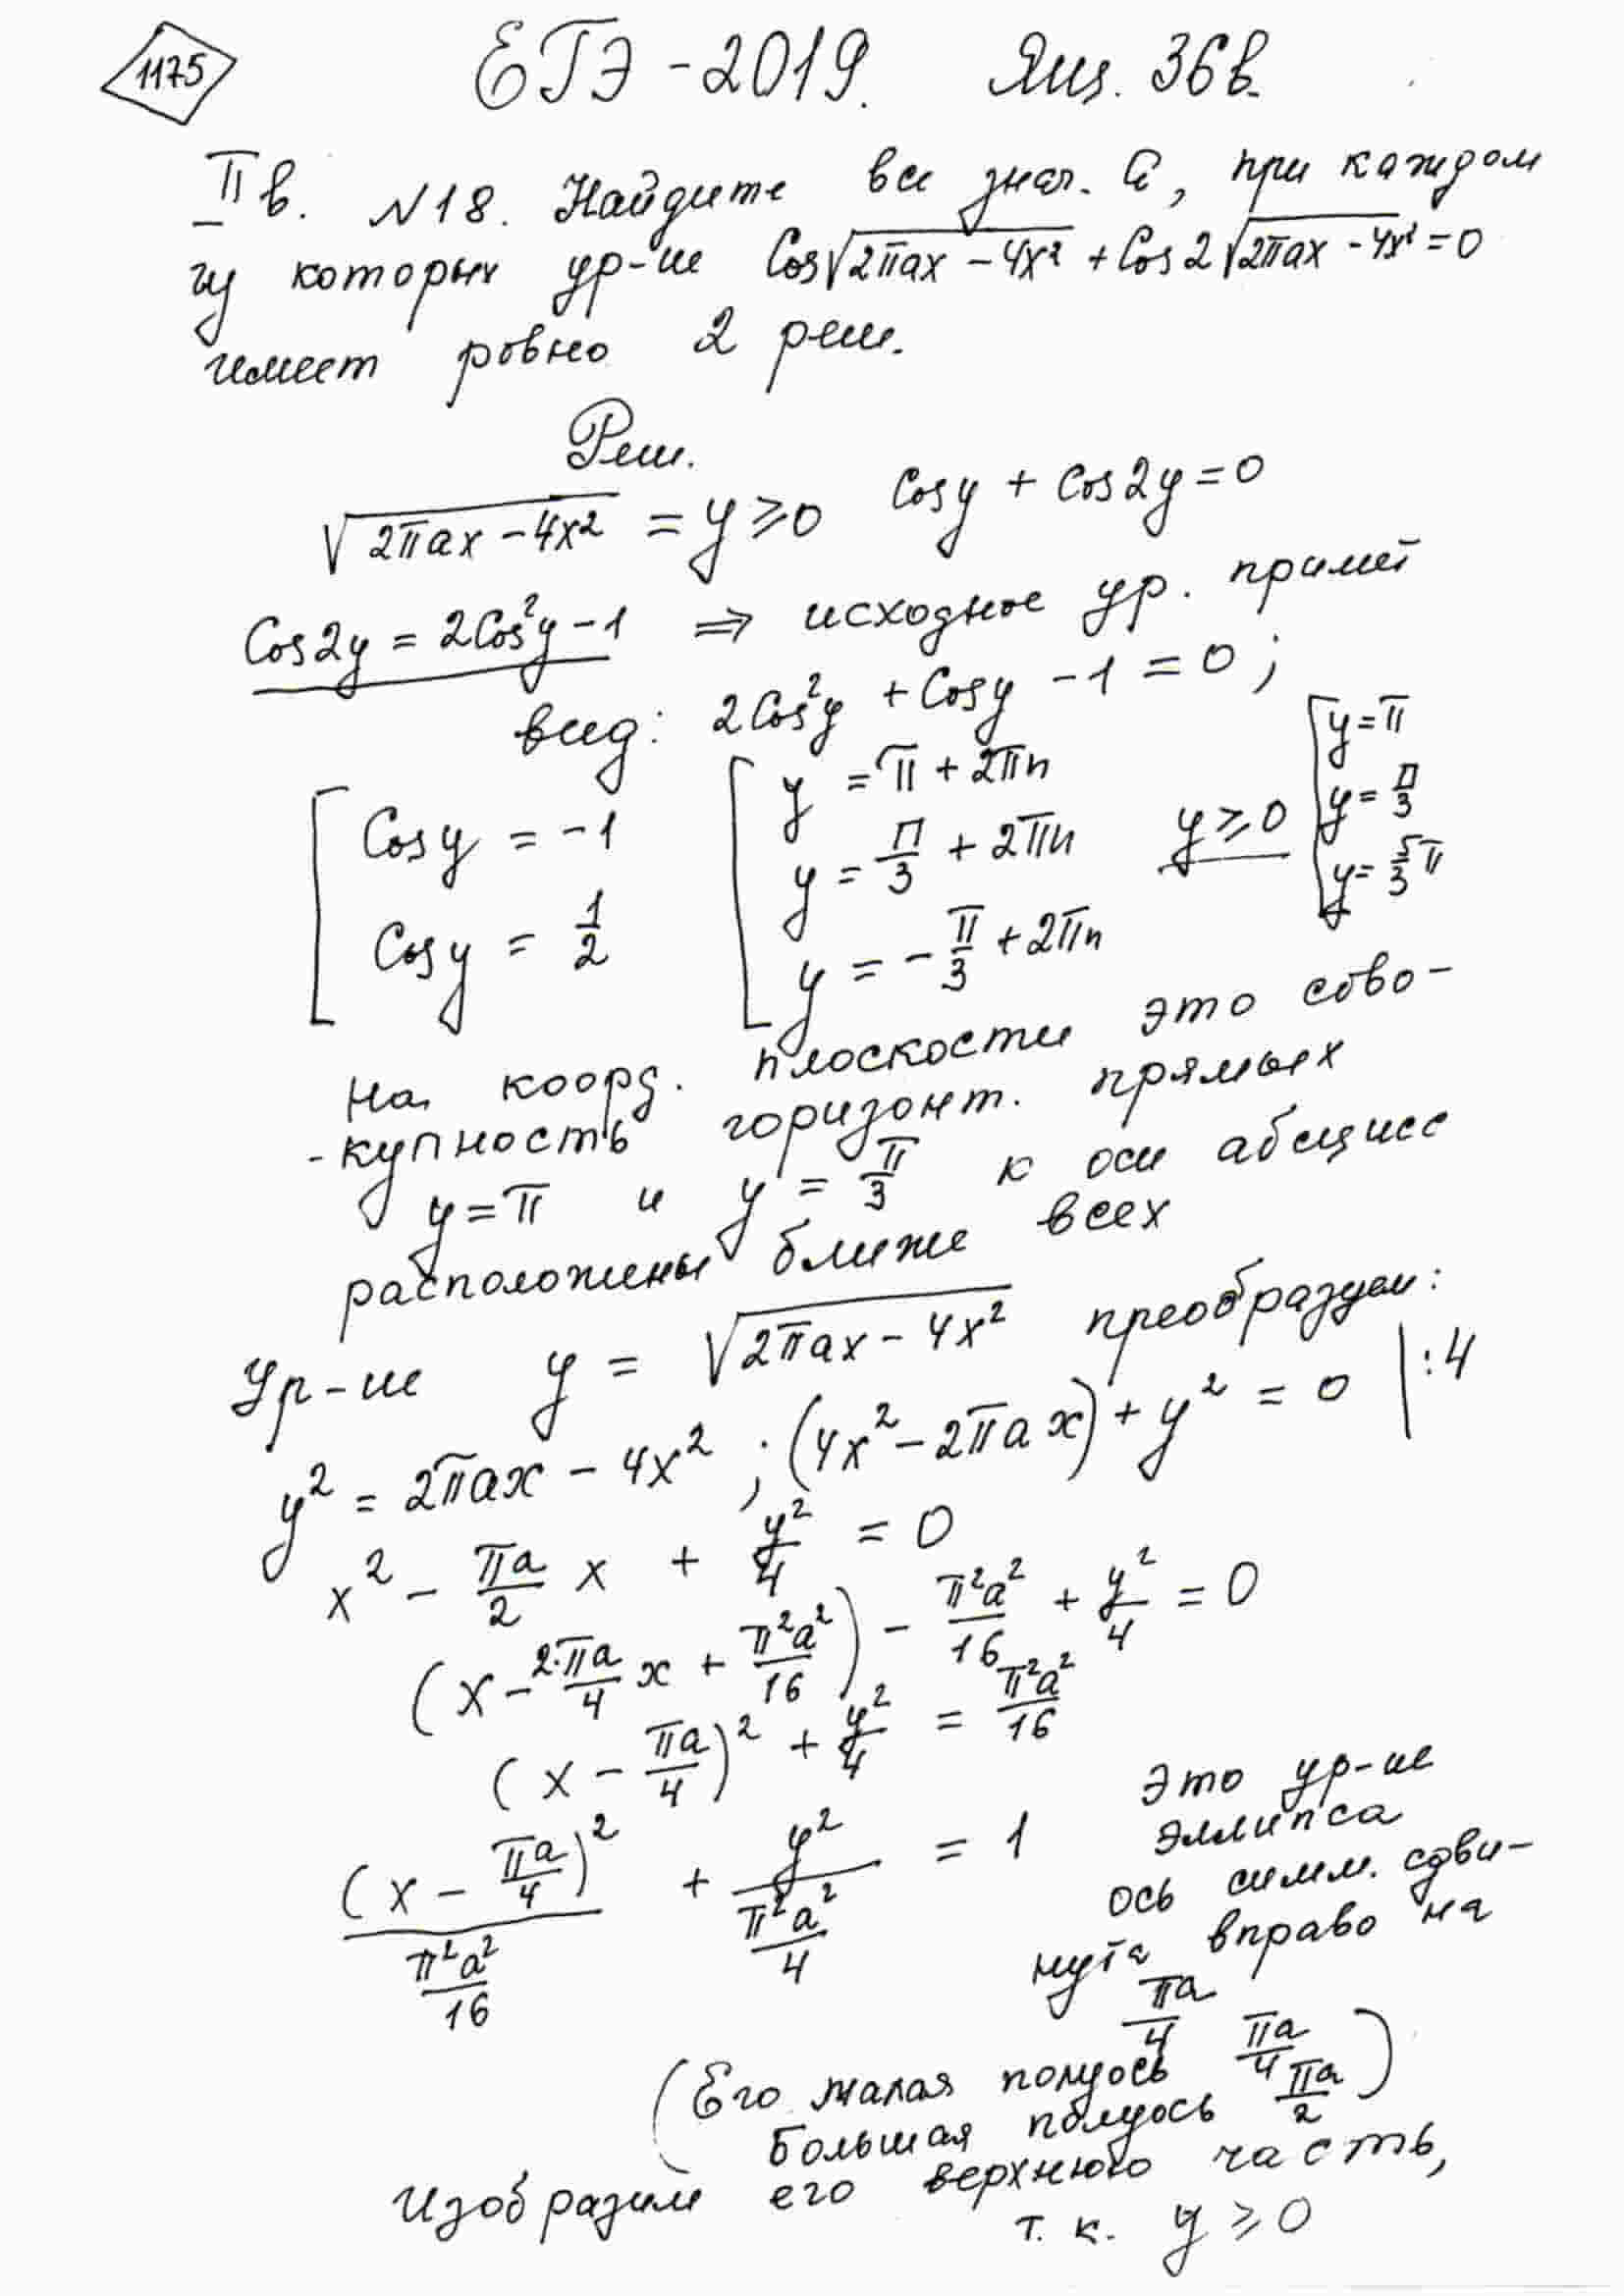 1175
ЕГЭ - 2019. Ящ. 36 в.
II в. №18. Найдите все знач. а, при каждом
из которых ур-ие Cos√(2πax - 4x²) + Cos 2√(2πax - 4x²) = 0
имеет ровно 2 реш.
Реш.
√(2πax - 4x²) = y ⩾ 0 Cos y + Cos 2y = 0
Cos 2y = 2Cos²y - 1 ⇒ исходное ур. примет
вид: 2Cos²y + Cos y - 1 = 0 ;
[ Cos y = -1
Cos y = 1/2
[ y = π + 2πn
y = π/3 + 2πn
y = -π/3 + 2πn
y ⩾ 0
[ y = π
y = π/3
y = 5/3 π
На коорд. плоскости это сово-
- купность горизонт. прямых
y = π и y = π/3 к оси абсцисс
расположены ближе всех
Ур-ие y = √(2πax - 4x²) преобразуем:
y² = 2πax - 4x² ; (4x² - 2πax) + y² = 0 | : 4
x² - πa/2 x + y²/4 = 0
(x - 2·πa/4 x + π²a²/16) - π²a²/16 + y²/4 = 0
(x - πa/4)² + y²/4 = π²a²/16
(x - πa/4)² / (π²a²/16) + y² / (π²a²/4) = 1
Это ур-ие
эллипса
ось симм. сдви-
нута вправо на
πa/4
(Его малая полуось πa/4
большая полуось πa/2)
Изобразим его верхнюю часть,
т. к. y ⩾ 0